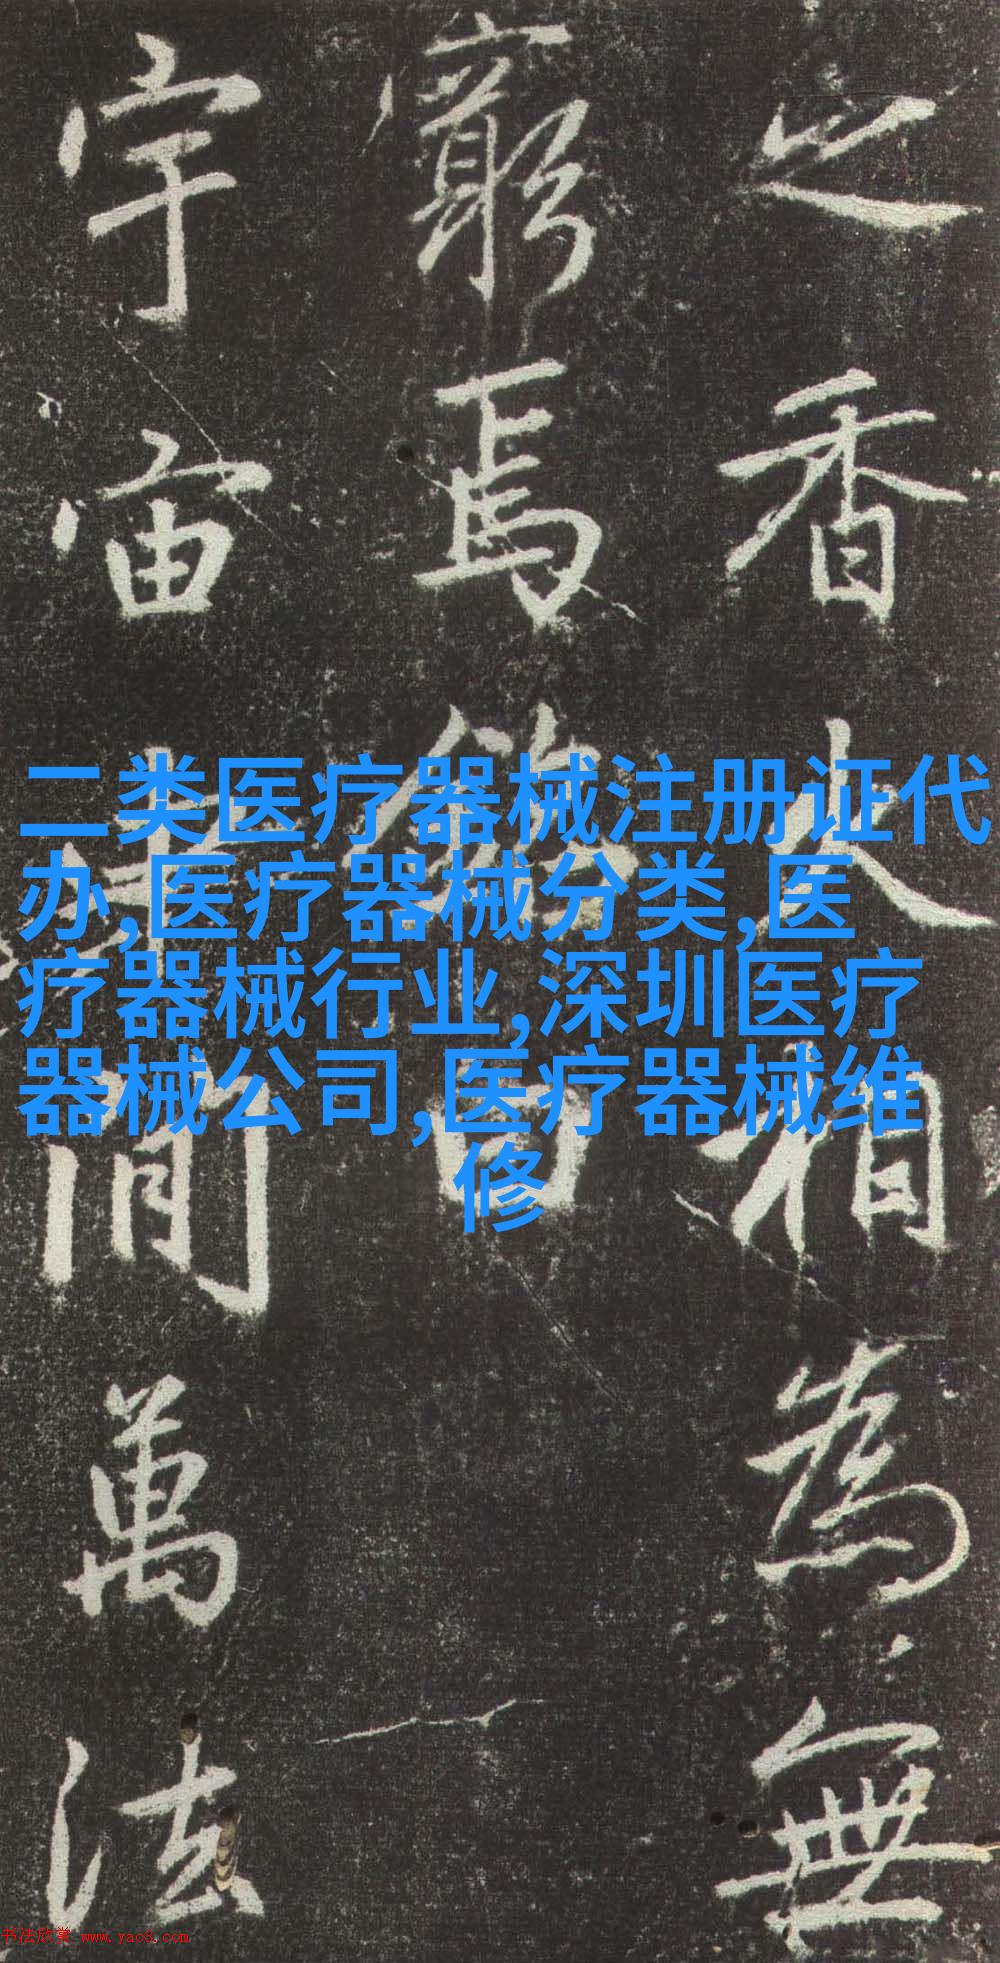 之香火相為無
窮焉銘曰
宇宙間萬法
二类医疗器械注册证代
办,医疗器械分类,医
疗器械行业,深圳医疗
器械公司,医疗器械维
修
书法欣赏 www.yac8.com